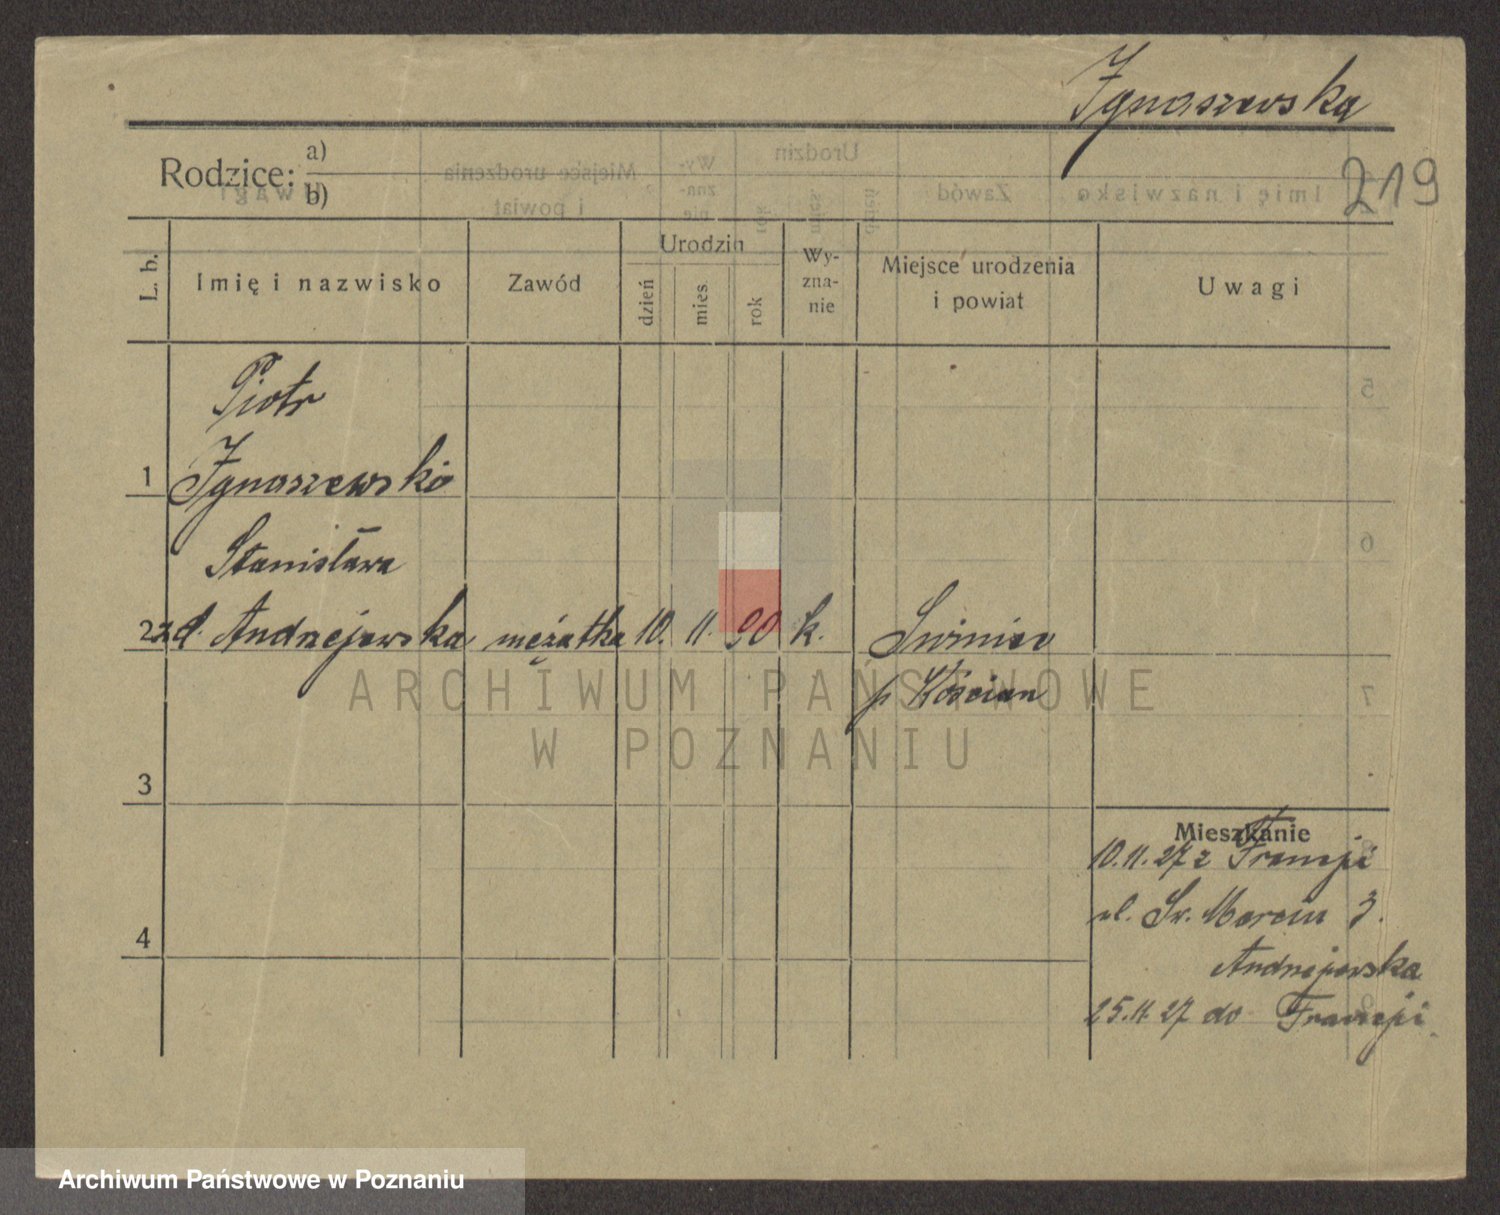 Ignaszewska
219
Rodzice: a)
b)
L. b.
Imię i nazwisko
Zawód
Urodzin
dzień
mies.
rok
Wy-
zna-
nie
Miejsce urodzenia
i powiat
Uwagi
Piotr
1 Ignaszewski
Stanisława
2 z d. Andrzejewska mężatka 10. 11. 90 k.
p. Kościan
3
4
Mieszkanie
10.11.27 z Francji
ul. Św. Marcin 3.
Andrzejewska
25.11 27 do Francji
ARCHIWUM PAŃSTWOWE
W POZNANIU
Archiwum Państwowe w Poznaniu